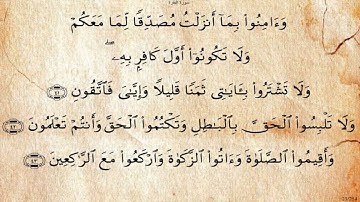 سورة البقرة
وَءَامِنُوا۟ بِمَآ أَنزَلْتُ مُصَدِّقًا لِّمَا مَعَكُمْ
وَلَا تَكُونُوٓا۟ أَوَّلَ كَافِرٍۭ بِهِۦ ۖ
وَلَا تَشْتَرُوا۟ بِـَٔايَـٰتِى ثَمَنًا قَلِيلًا وَإِيَّـٰىَ فَٱتَّقُونِ ٤١
وَلَا تَلْبِسُوا۟ ٱلْحَقَّ بِٱلْبَـٰطِلِ وَتَكْتُمُوا۟ ٱلْحَقَّ وَأَنتُمْ تَعْلَمُونَ ٤٢
وَأَقِيمُوا۟ ٱلصَّلَوٰةَ وَءَاتُوا۟ ٱلزَّكَوٰةَ وَٱرْكَعُوا۟ مَعَ ٱلرَّٰكِعِينَ ٤٣